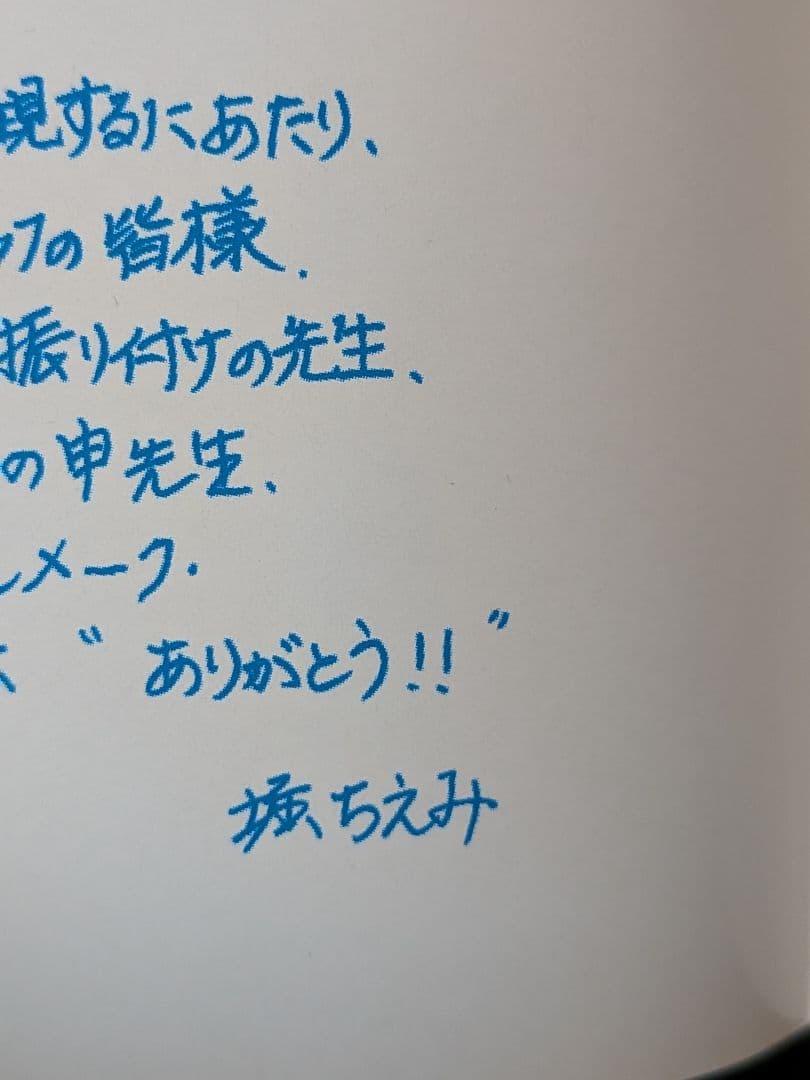 現するにあたり、
ッフの皆様.
振り付けの先生、
の申先生、
ルメーク.
“ありがとう!!”
堀ちえみ